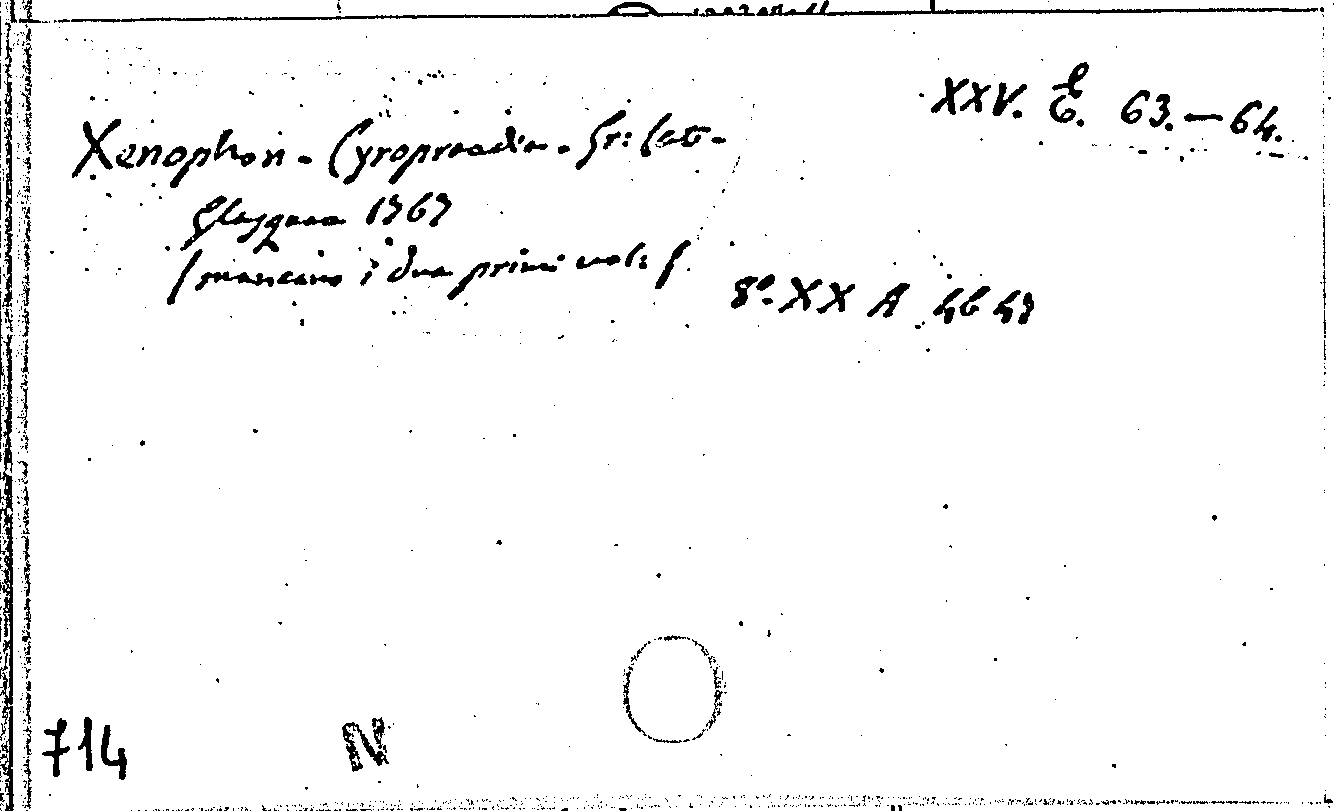 XXV. E. 63.—64.
Xenophon. Cyropraedia. Gr: lat.
Glasguae 1767
(mancano i due primi vol: (
8º. XX A 46 47
714
N